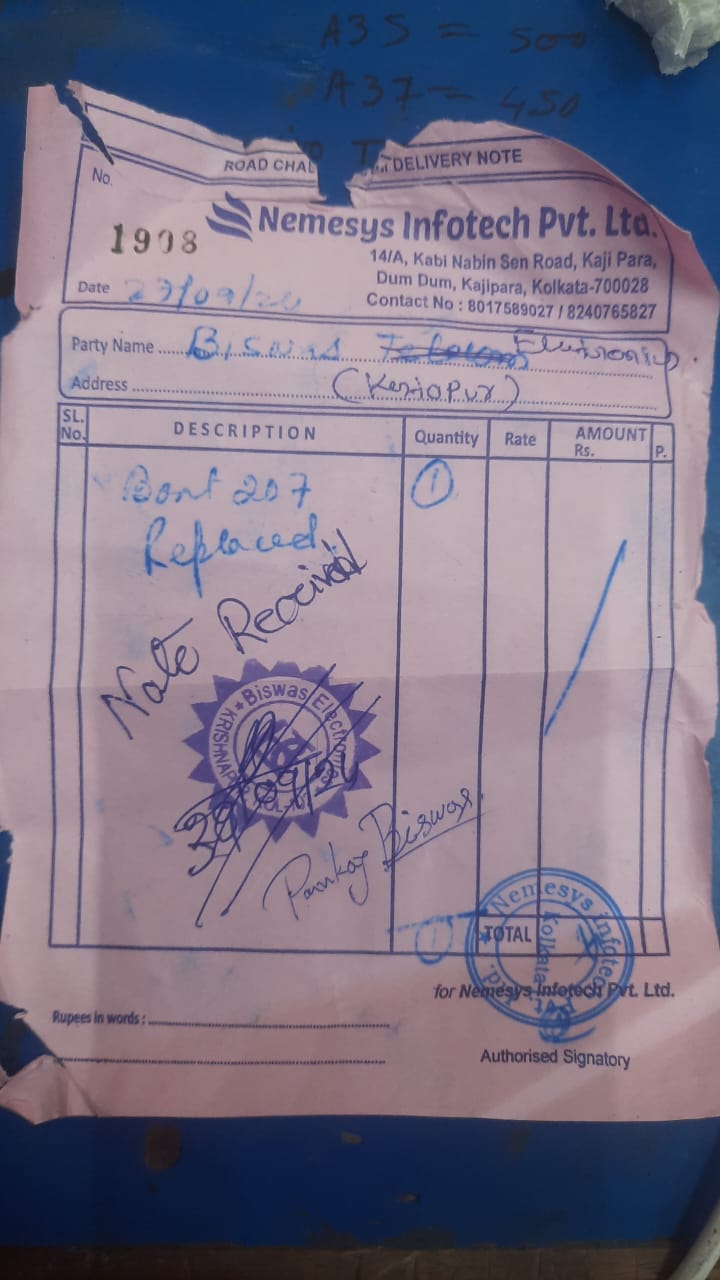 A35 = 500
A37 = 450
ROAD CHAL DELIVERY NOTE
No.
1908
Nemesys Infotech Pvt. Ltd.
14/A, Kabi Nabin Sen Road, Kaji Para,
Dum Dum, Kajipara, Kolkata-700028
Contact No : 8017589027 / 8240765827
Date 27/09/24
Party Name Biswas Electronics.
Address (Kestopur)
SL. No. DESCRIPTION Quantity Rate AMOUNT Rs. P.
207 1
Replaced
Note Received
Biswas Electronics
30/09/24
Pankaj Biswas.
1 TOTAL
Nemesys Infotech Pvt. Ltd.
Kolkata
for Nemesys Infotech Pvt. Ltd.
Rupees in words :
Authorised Signatory